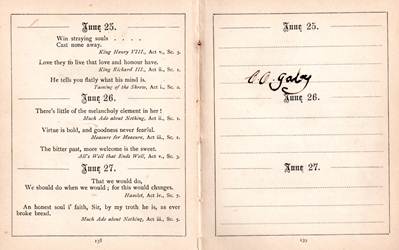 June 25.
Win straying souls . . . .
Cast none away.
King Henry VIII., Act v., Sc. 3.
Love they to live that love and honour have.
King Richard II., Act ii., Sc. 1.
He tells you flatly what his mind is.
Taming of the Shrew, Act i., Sc. 2.
June 26.
There's little of the melancholy element in her!
Much Ado about Nothing, Act ii., Sc. 1.
Virtue is bold, and goodness never fearful.
Measure for Measure, Act iii., Sc. 1.
The bitter past, more welcome is the sweet.
All's Well that Ends Well, Act v., Sc. 3.
June 27.
That we would do,
We should do when we would; for this would changes.
Hamlet, Act iv., Sc. 7.
An honest soul i' faith, Sir, by my troth he is, as ever
broke bread.
Much Ado about Nothing, Act iii., Sc. 5.
138
June 25.
June 26.
June 27.
139